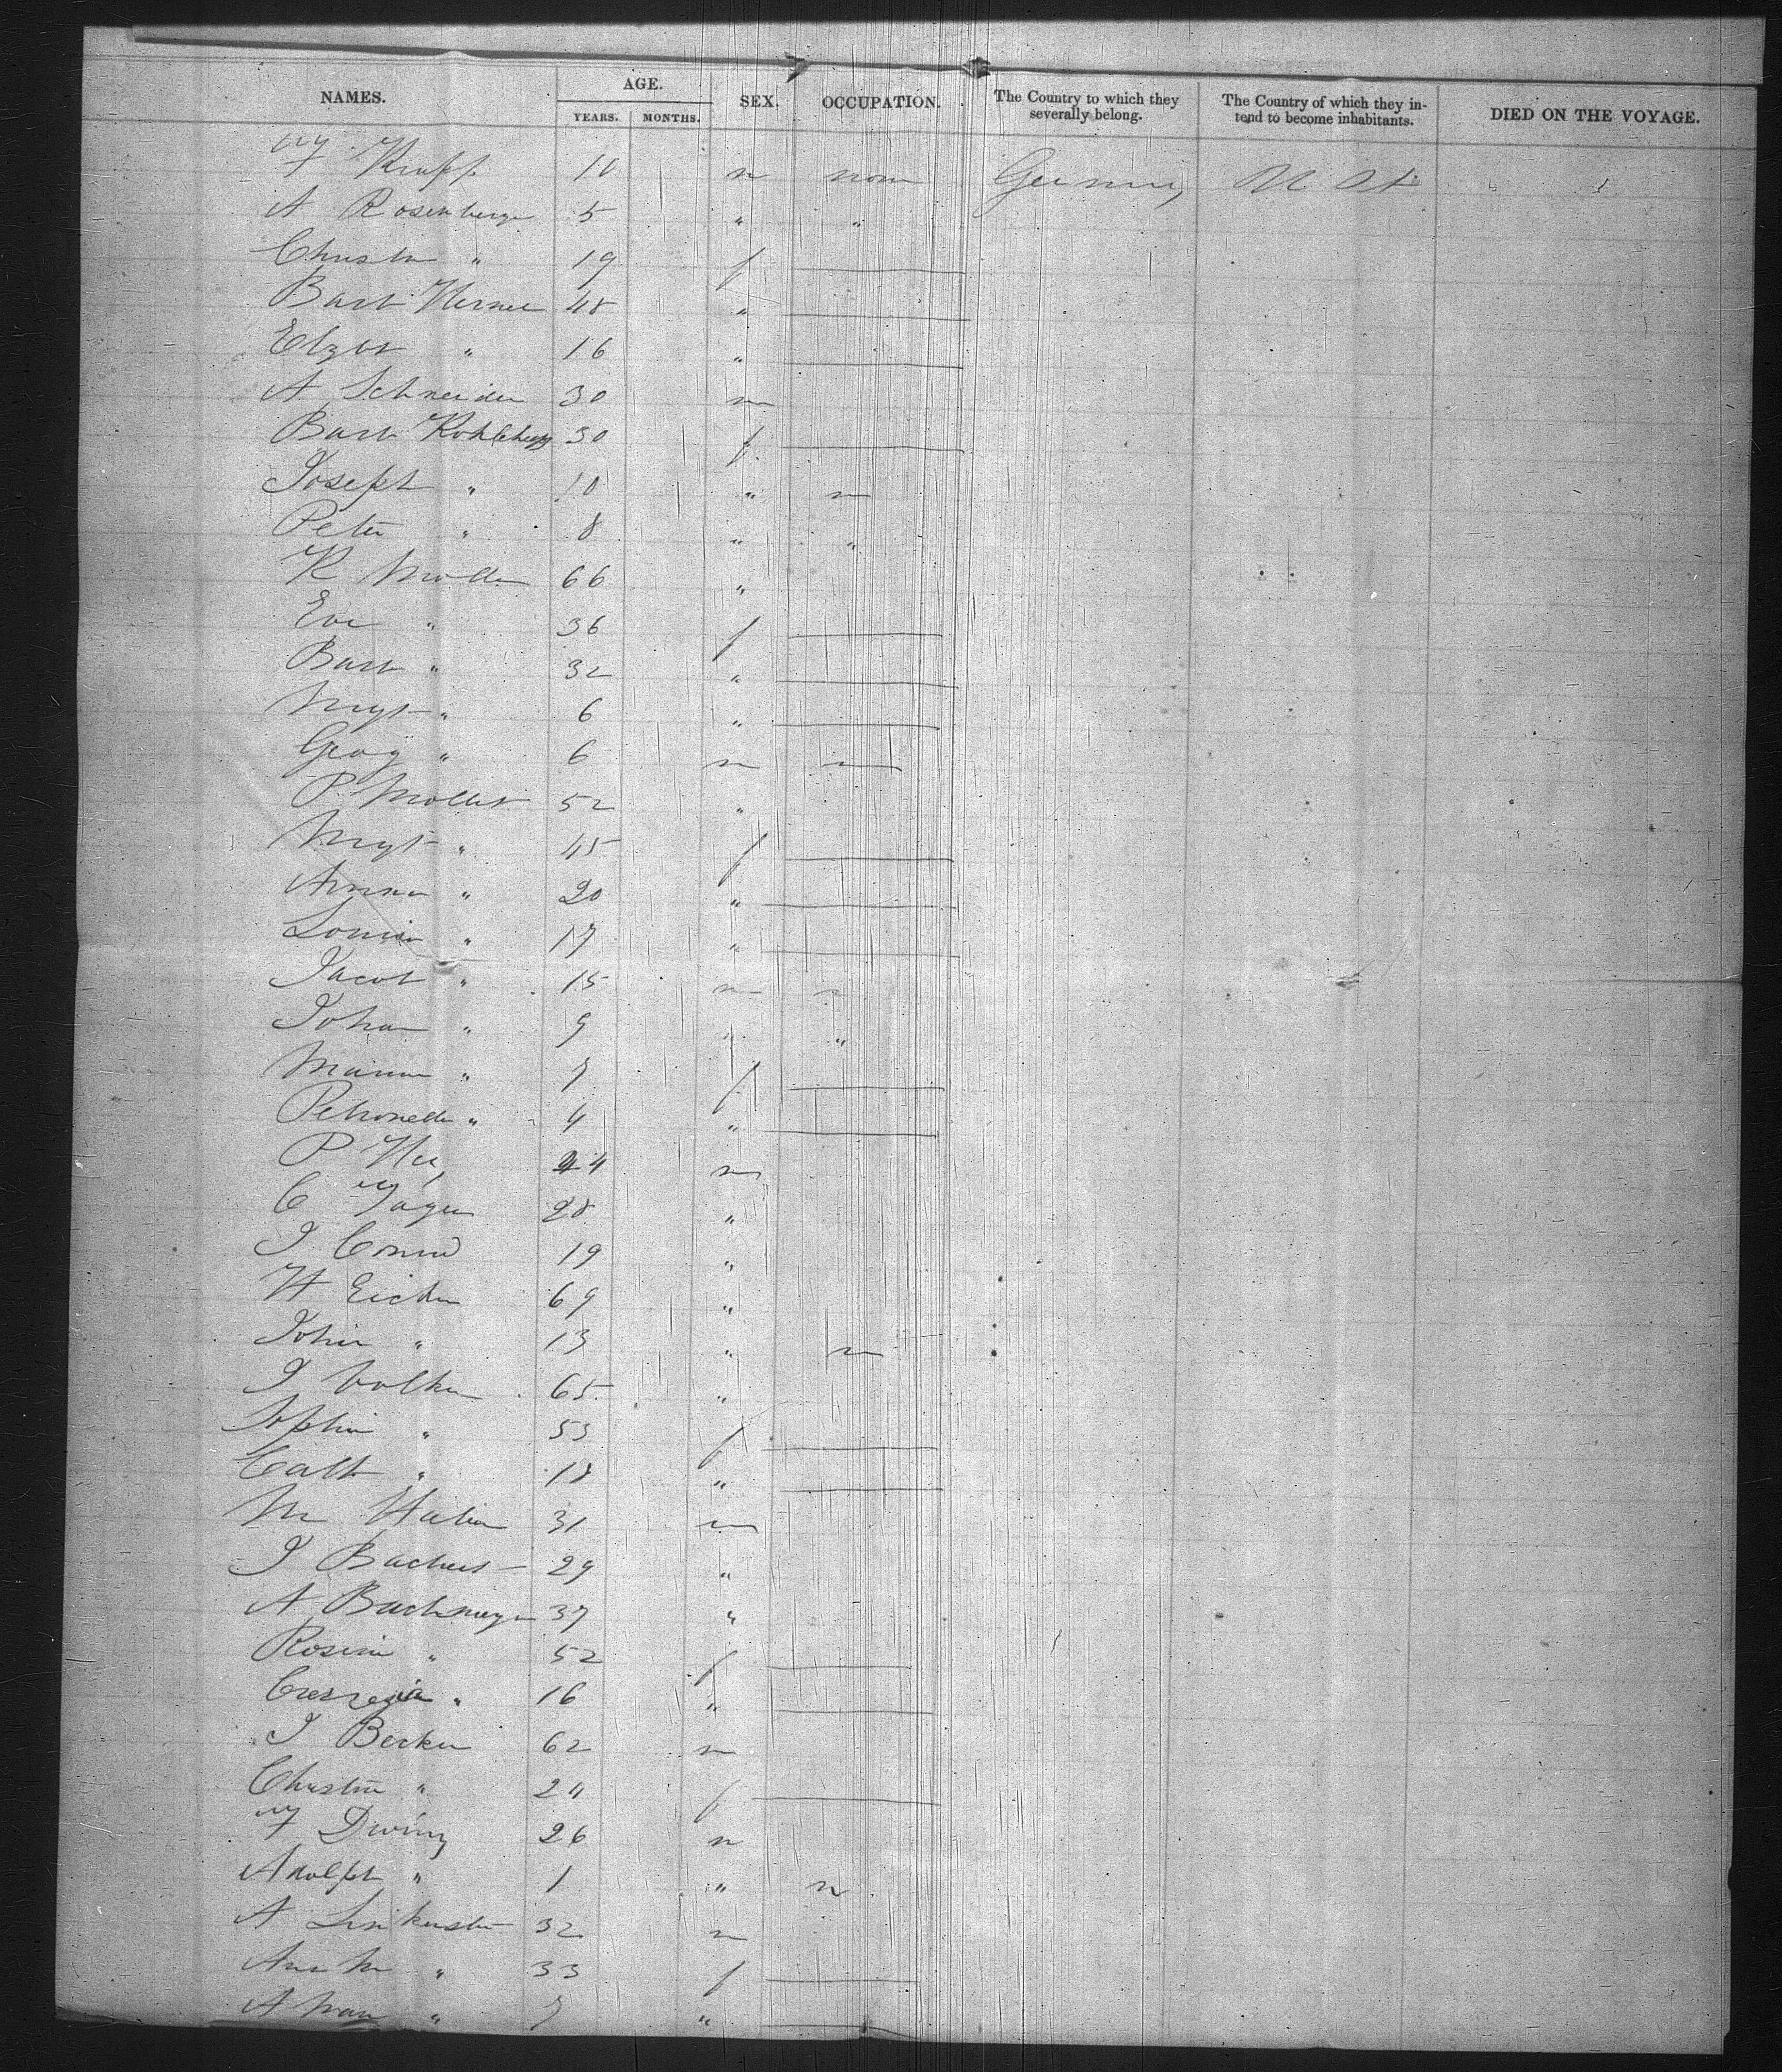 NAMES. AGE. YEARS. MONTHS. SEX. OCCUPATION. The Country to which they severally belong. The Country of which they intend to become inhabitants. DIED ON THE VOYAGE.
F Krapp 10 m none Germany U St
A Rosenberger 5 " "
Christn " 19 f
Barb 48 "
Elzbt " 16 "
A Schneider 30 m
Barb 30 f
Joseph " 10 " n
Peter " 8 " "
K Moller 66 "
Eve " 36 f
Barb " 32 "
Mrgt " 6 "
Georg " 6 m n
P Mollet 52 "
Mrgt " 45 f
Anna " 20 "
Louisa " 17 "
Jacob " 15 m n
Johan " 9 " "
Maria " 7 f
Petronella " 4 "
P 44 m
C Yager 28 "
J Conrad 19 "
H Eicher 69 "
John " 13 " n
J Volker 65 "
Sophia " 53 f
Cath " 18 "
M 31 m
J 29 "
A Bachmayer 37 "
Rosina " 52 f
Creszezia " 16 "
J Becker 62 m
Christin " 24 f
F 26 m
Adolph " 1 " n
A 32 m
Ann M " 33 f
A Mar " 7 "